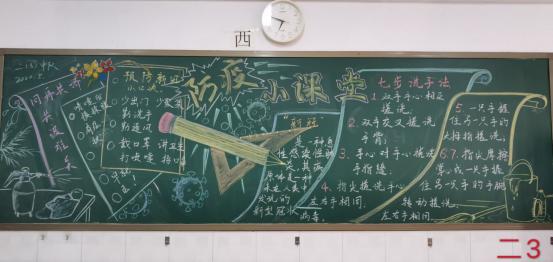 西
2020.5.
预防新冠
小口诀
少出门 少聚
勤洗手
勤通风
戴口罩 讲卫生
打喷嚏 捂口
防疫
小课堂
"新冠
是一种急
性感染性肺
炎,其病
原体是一种
发现的
新型冠状
病毒。
七步洗手法
1.双手手心相互
搓洗。
2.双手交叉搓洗
手指。
3.手心对手心搓洗
手指缝。
4.指尖搓洗手心
左右手相同。
5.一只手握
住另一只手的
大拇指搓洗。
6.7.指尖摩擦
掌心或一只手握
住另一只手的手腕
转动搓洗,
左右手相同。
二3